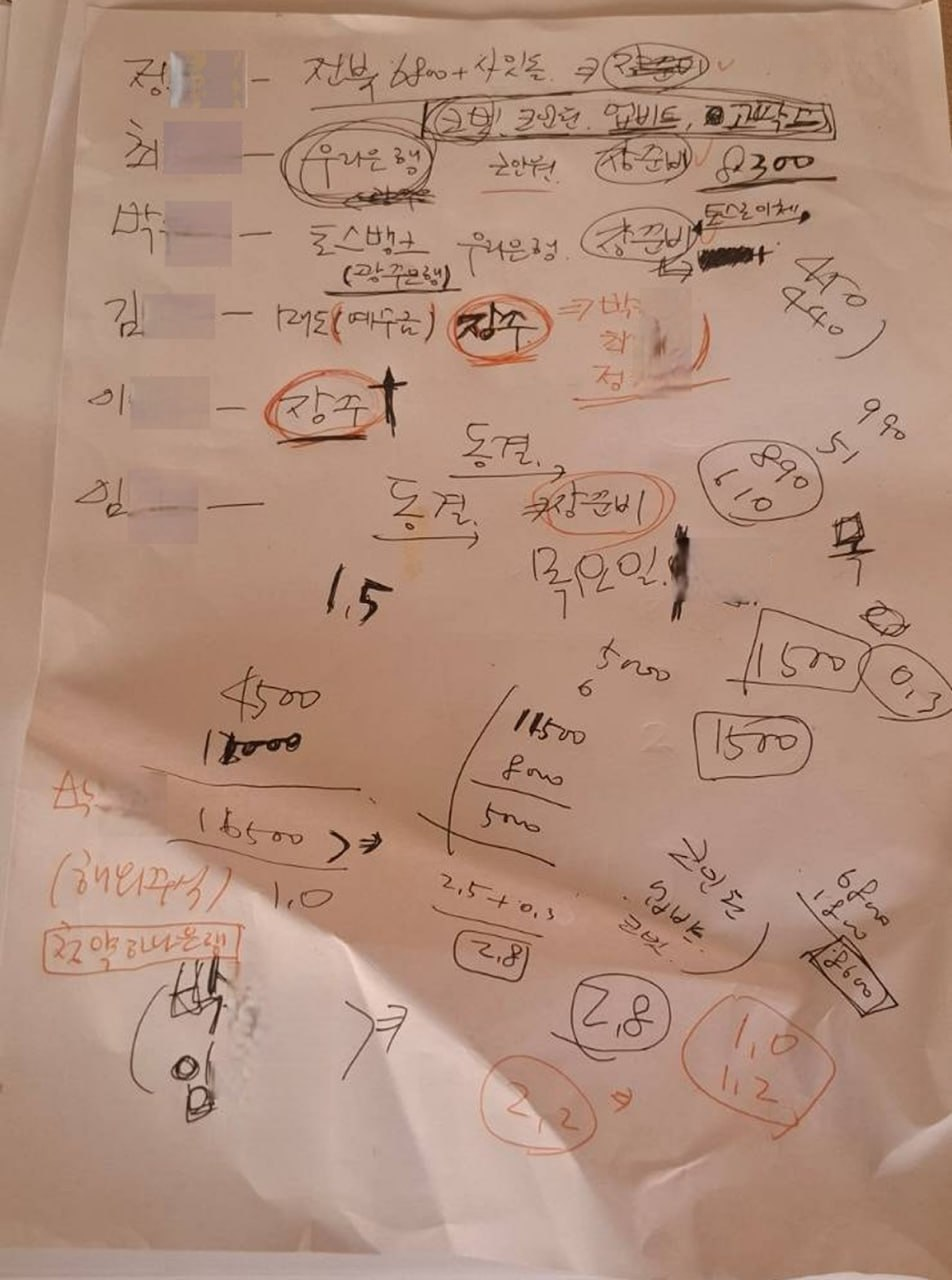 정 — 전북 6800+
(코빗, 코인원. 업비트,
최 — 우리은행 코인원 장준비 8300
박 — 토스뱅크 우리은행. 장준비 토스로이체
(광주은행)
김 — 매도(예수금) 장주. ⇒ 박
최
정
450
440)
이 — 장주
990
51
동결. →
890
610
임 — 동결. → ⇒ 장준비
목
목요일.
1.5
1500 0.3
5000
6
4500
11500 1500
8000
16500 > ⇒ 5000
(해외주식) 1.0
2.5 + 0.3
코인원
업비트
코빗
6800
1800
8600
청약하나은행
2.8
(박
임 ) ⇒
2.8
1.0
1.2
2.2 ⇒